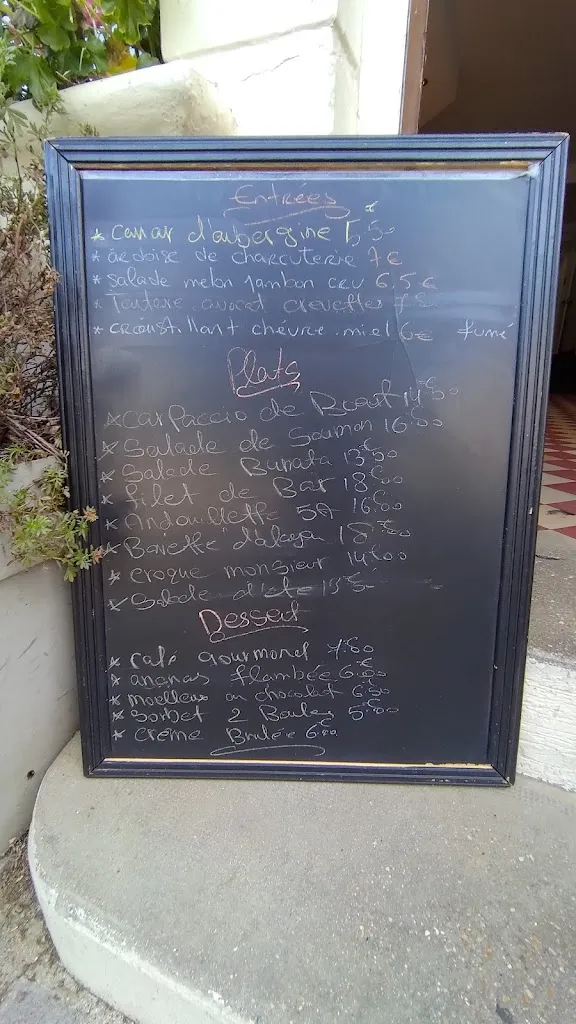 Entrées
* caviar d'aubergine 5,50
* ardoise de charcuterie 7€
* salade melon jambon cru 6,5€
* Tartare avocat crevettes 7€
* croustillant chèvre miel 6€ fumé
Plats
* Carpaccio de Boeuf 14€50
* Salade de Saumon 16€00
* Salade Burrata 13€50
* filet de Bar 18€00
* Andouillette 5A 16€00
* Bavette d'aloyau 18€00
* croque monsieur 14€00
* Salade d'été
Dessert
* café gourmand 7€80
* ananas flambée 6€00
* moelleux au chocolat 6€50
* Sorbet 2 Boules 5€00
* crème Brulée 6€00